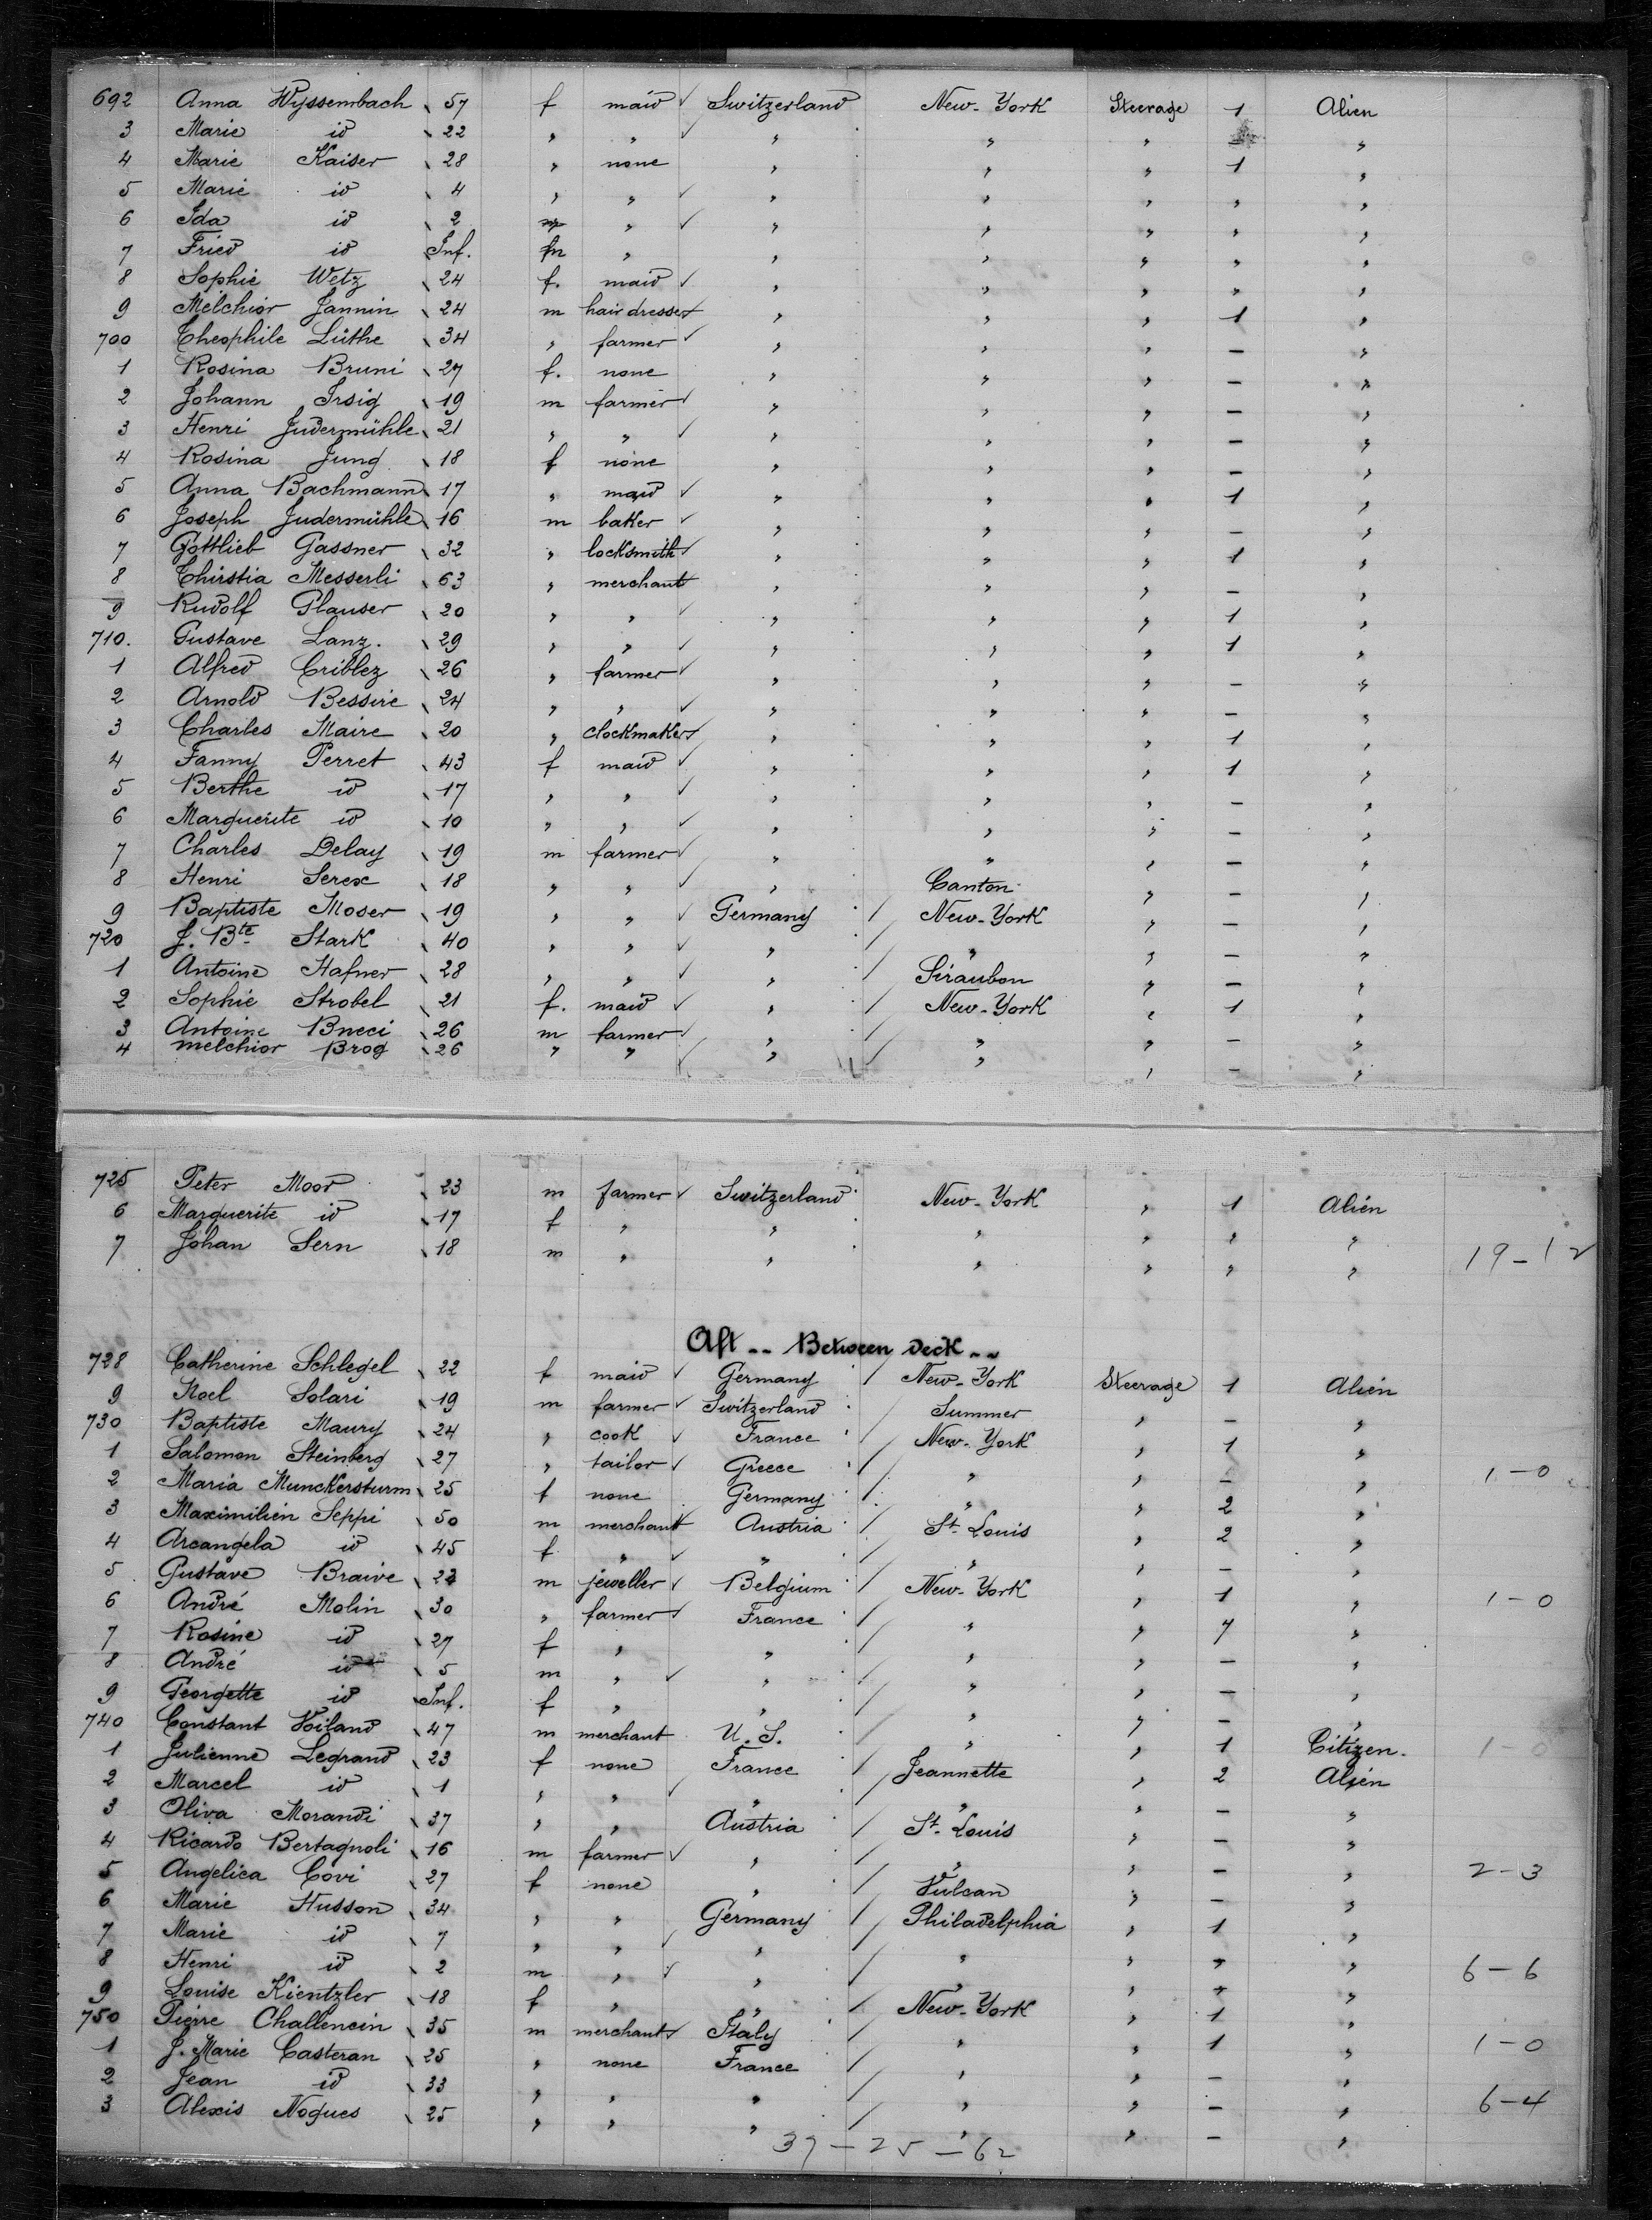 692 Anna Wyssembach 57 f maid ✓ Switzerland New-York Steerage 1 Alien
3 Marie id 22 " " ✓ " " " - "
4 Marie Kaiser 28 " none " " " 1 "
5 Marie id 4 " " ✓ " " " " "
6 Ida id 2 " ✓ " " " " "
7 Fried id Inf. m " " " " " "
8 Sophie Wetz 24 f. maid ✓ " " " " "
9 Melchior Jannin 24 m hair dresser ✓ " " " 1 "
700 Theophile Lüthe 34 " farmer ✓ " " " - "
1 Rosina Bruni 27 f. none " " " - "
2 Johann Irsig 19 m farmer ✓ " " " - "
3 Henri Judermühle 21 " " ✓ " " " - "
4 Rosina Jung 18 f none " " " - "
5 Anna Bachmann 17 " maid ✓ " " " 1 "
6 Joseph Judermühle 16 m baker ✓ " " " - "
7 Gottlieb Gassner 32 " locksmith ✓ " " " 1 "
8 Chirstia Messerli 63 " merchant " " " - "
9 Rudolf Glauser 20 " " ✓ " " " 1 "
710. Gustave Lanz. 29 " " ✓ " " " 1 "
1 Alfred Criblez 26 " farmer ✓ " " " - "
2 Arnold Bessire 24 " " ✓ " " " - "
3 Charles Maire 20 " clockmaker ✓ " " " 1 "
4 Fanny Perret 43 f maid ✓ " " " 1 "
5 Berthe id 17 " " ✓ " " " - "
6 Marguerite id 10 " " ✓ " " " - "
7 Charles Delay 19 m farmer ✓ " " " - "
8 Henri Serex 18 " " ✓ " Canton " - "
9 Baptiste Moser 19 " " ✓ Germany / New-York " - "
720 J. Bte Stark 40 " " ✓ " / " " - "
1 Antoine Hafner 28 " " ✓ " / Siraubon " - "
2 Sophie Strobel 21 f. maid ✓ " / New-York " 1 "
3 Antoine Bneci 26 m farmer ✓ " / " " - "
4 Melchior Brog 26 " " ✓ " / " " - "
725 Peter Moor 23 m farmer ✓ Switzerland New-York " 1 Alien
6 Marguerite id 17 f " " " " " "
7 Johan Sern 18 m " " " " " " 19-12
Aft -- Between Deck --
728 Catherine Schlegel 22 f maid ✓ Germany / New-York Steerage 1 Alien
9 Noel Solari 19 m farmer ✓ Switzerland Summer " - "
730 Baptiste Maury 24 " cook ✓ France / New-York " 1 "
1 Salomon Steinberg 27 " tailor ✓ Greece / " " - " 1-0
2 Maria Munckersturm 25 f none Germany / " " 2 "
3 Maximilien Seppi 50 m merchant ✓ Austria / St. Louis " 2 "
4 Arcangela id 45 f " ✓ " / " " - "
5 Gustave Braive 22 m jeweller ✓ Belgium / New-York " 1 " 1-0
6 André Molin 30 " farmer ✓ France / " " 7 "
7 Rosine id 27 f " " / " " - "
8 André id 5 m " ✓ " / " " - "
9 Georgette id Inf. f " " / " " - "
740 Constant Voiland 47 m merchant U.S. " " 1 Citizen. 1-0
1 Julienne Legrand 23 f none France / Jeannette " 2 Alien
2 Marcel id 1 " " ✓ " / " " - "
3 Oliva Morandi 37 " " Austria / St. Louis " - "
4 Ricardo Bertagnoli 16 m farmer ✓ " / " " - " 2-3
5 Angelica Covi 27 f none " / Vulcan " - "
6 Marie Husson 34 " " Germany / Philadelphia " 1 "
7 Marie id 7 " " ✓ " / " " " "
8 Henri id 2 m " ✓ " / " " " " 6-6
9 Louise Kientzler 18 f " " / New-York " 1 "
750 Pierre Challencin 35 m merchant ✓ Italy / " " 1 " 1-0
1 J. Marie Casteran 25 " none France / " " - "
2 Jean id 33 " " " / " " - " 6-4
3 Alexis Nogues 25 " " " / " " - "
37-25-62